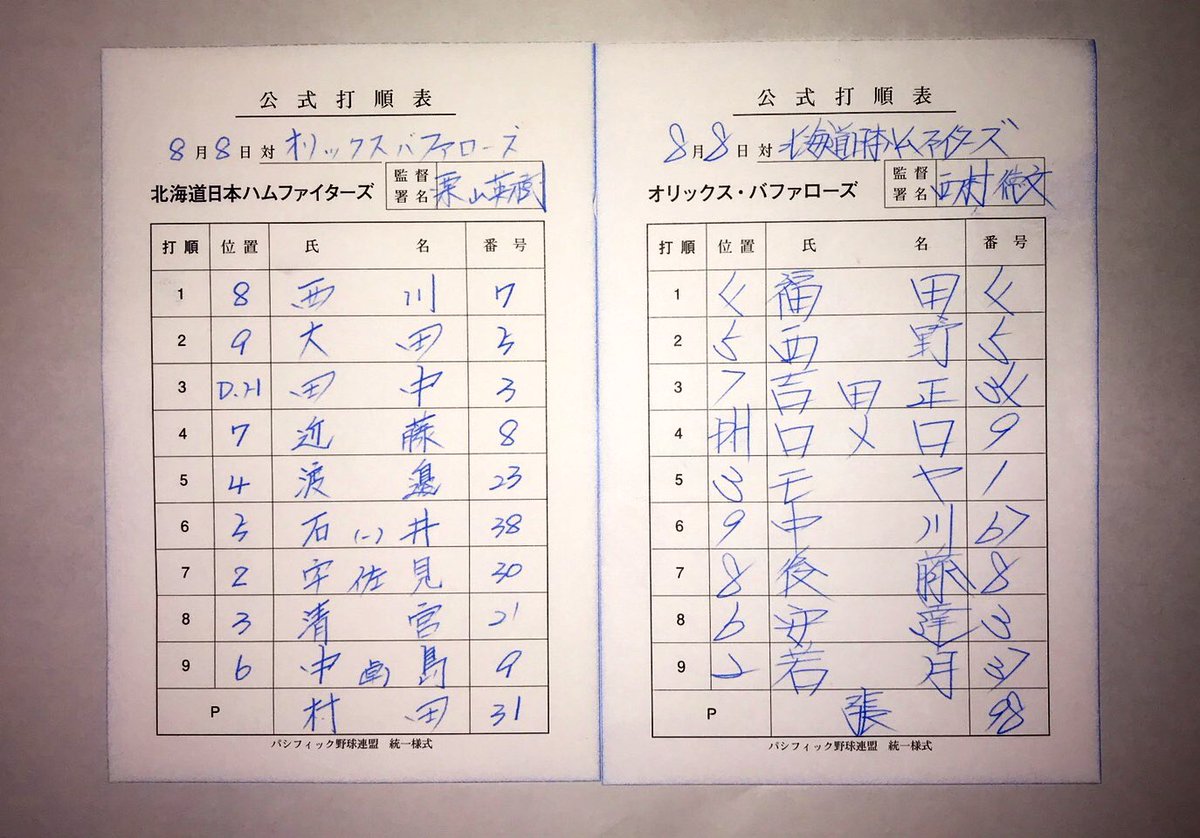 公式打順表
8月8日対 オリックスバファローズ
北海道日本ハムファイターズ 監督署名 栗山英樹
打順 位置 氏名 番号
1 8 西川 7
2 9 大田 5
3 D.H 田中 3
4 7 近藤 8
5 4 渡邉 23
6 5 石(一)井 38
7 2 宇佐見 30
8 3 清宮 21
9 6 中卓島 9
P 村田 31
パシフィック野球連盟 統一様式
公式打順表
8月8日対 北海道日本ハムファイターズ
オリックス・バファローズ 監督署名 西村徳文
打順 位置 氏名 番号
1 4 福田 4
2 5 西野 5
3 7 吉田正 34
4 DH ロメロ 9
5 3 モヤ 1
6 9 中川 67
7 8 後藤 8
8 6 安達 3
9 2 若月 37
P 張 98
パシフィック野球連盟 統一様式